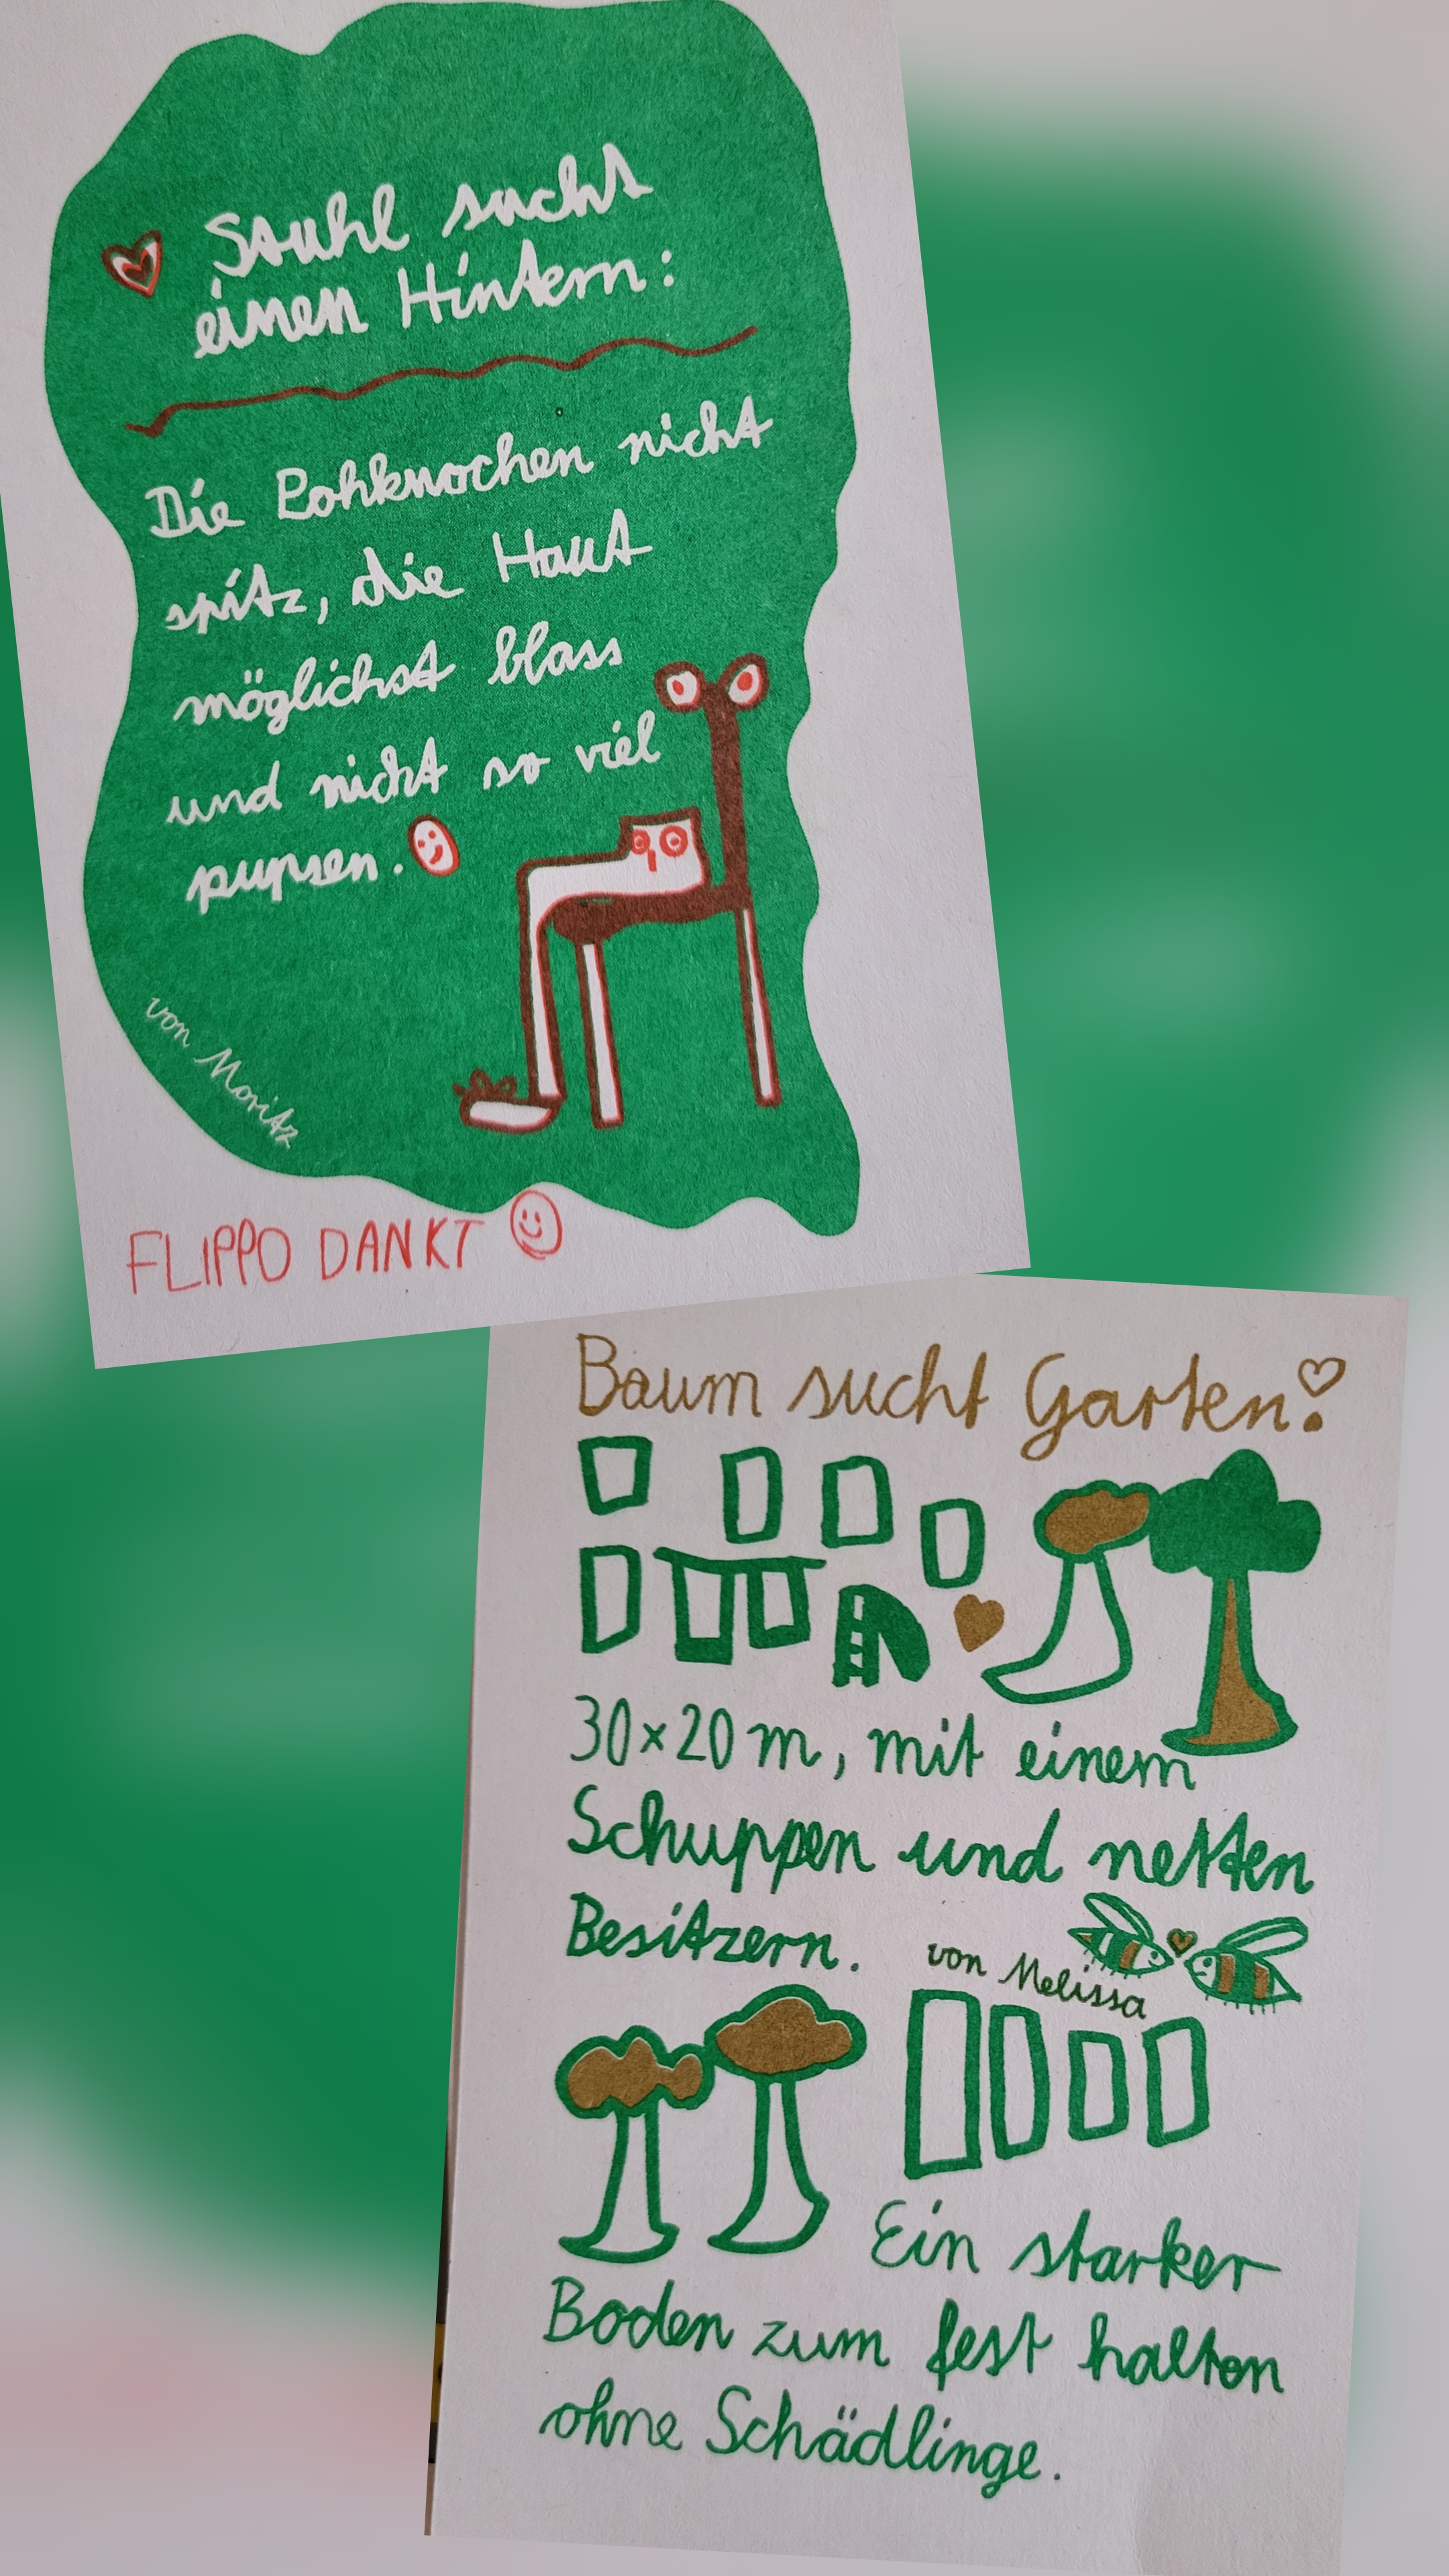 Stuhl sucht
einen Hintern:
Die Pohknochen nicht
spitz, die Haut
möglichst blass
und nicht so viel
pupsen.
von Moritz
FLIPPO DANKT
Baum sucht Garten!
30×20 m, mit einem
Schuppen und netten
Besitzern.
von Melissa
Ein starker
Boden zum fest halten
ohne Schädlinge.